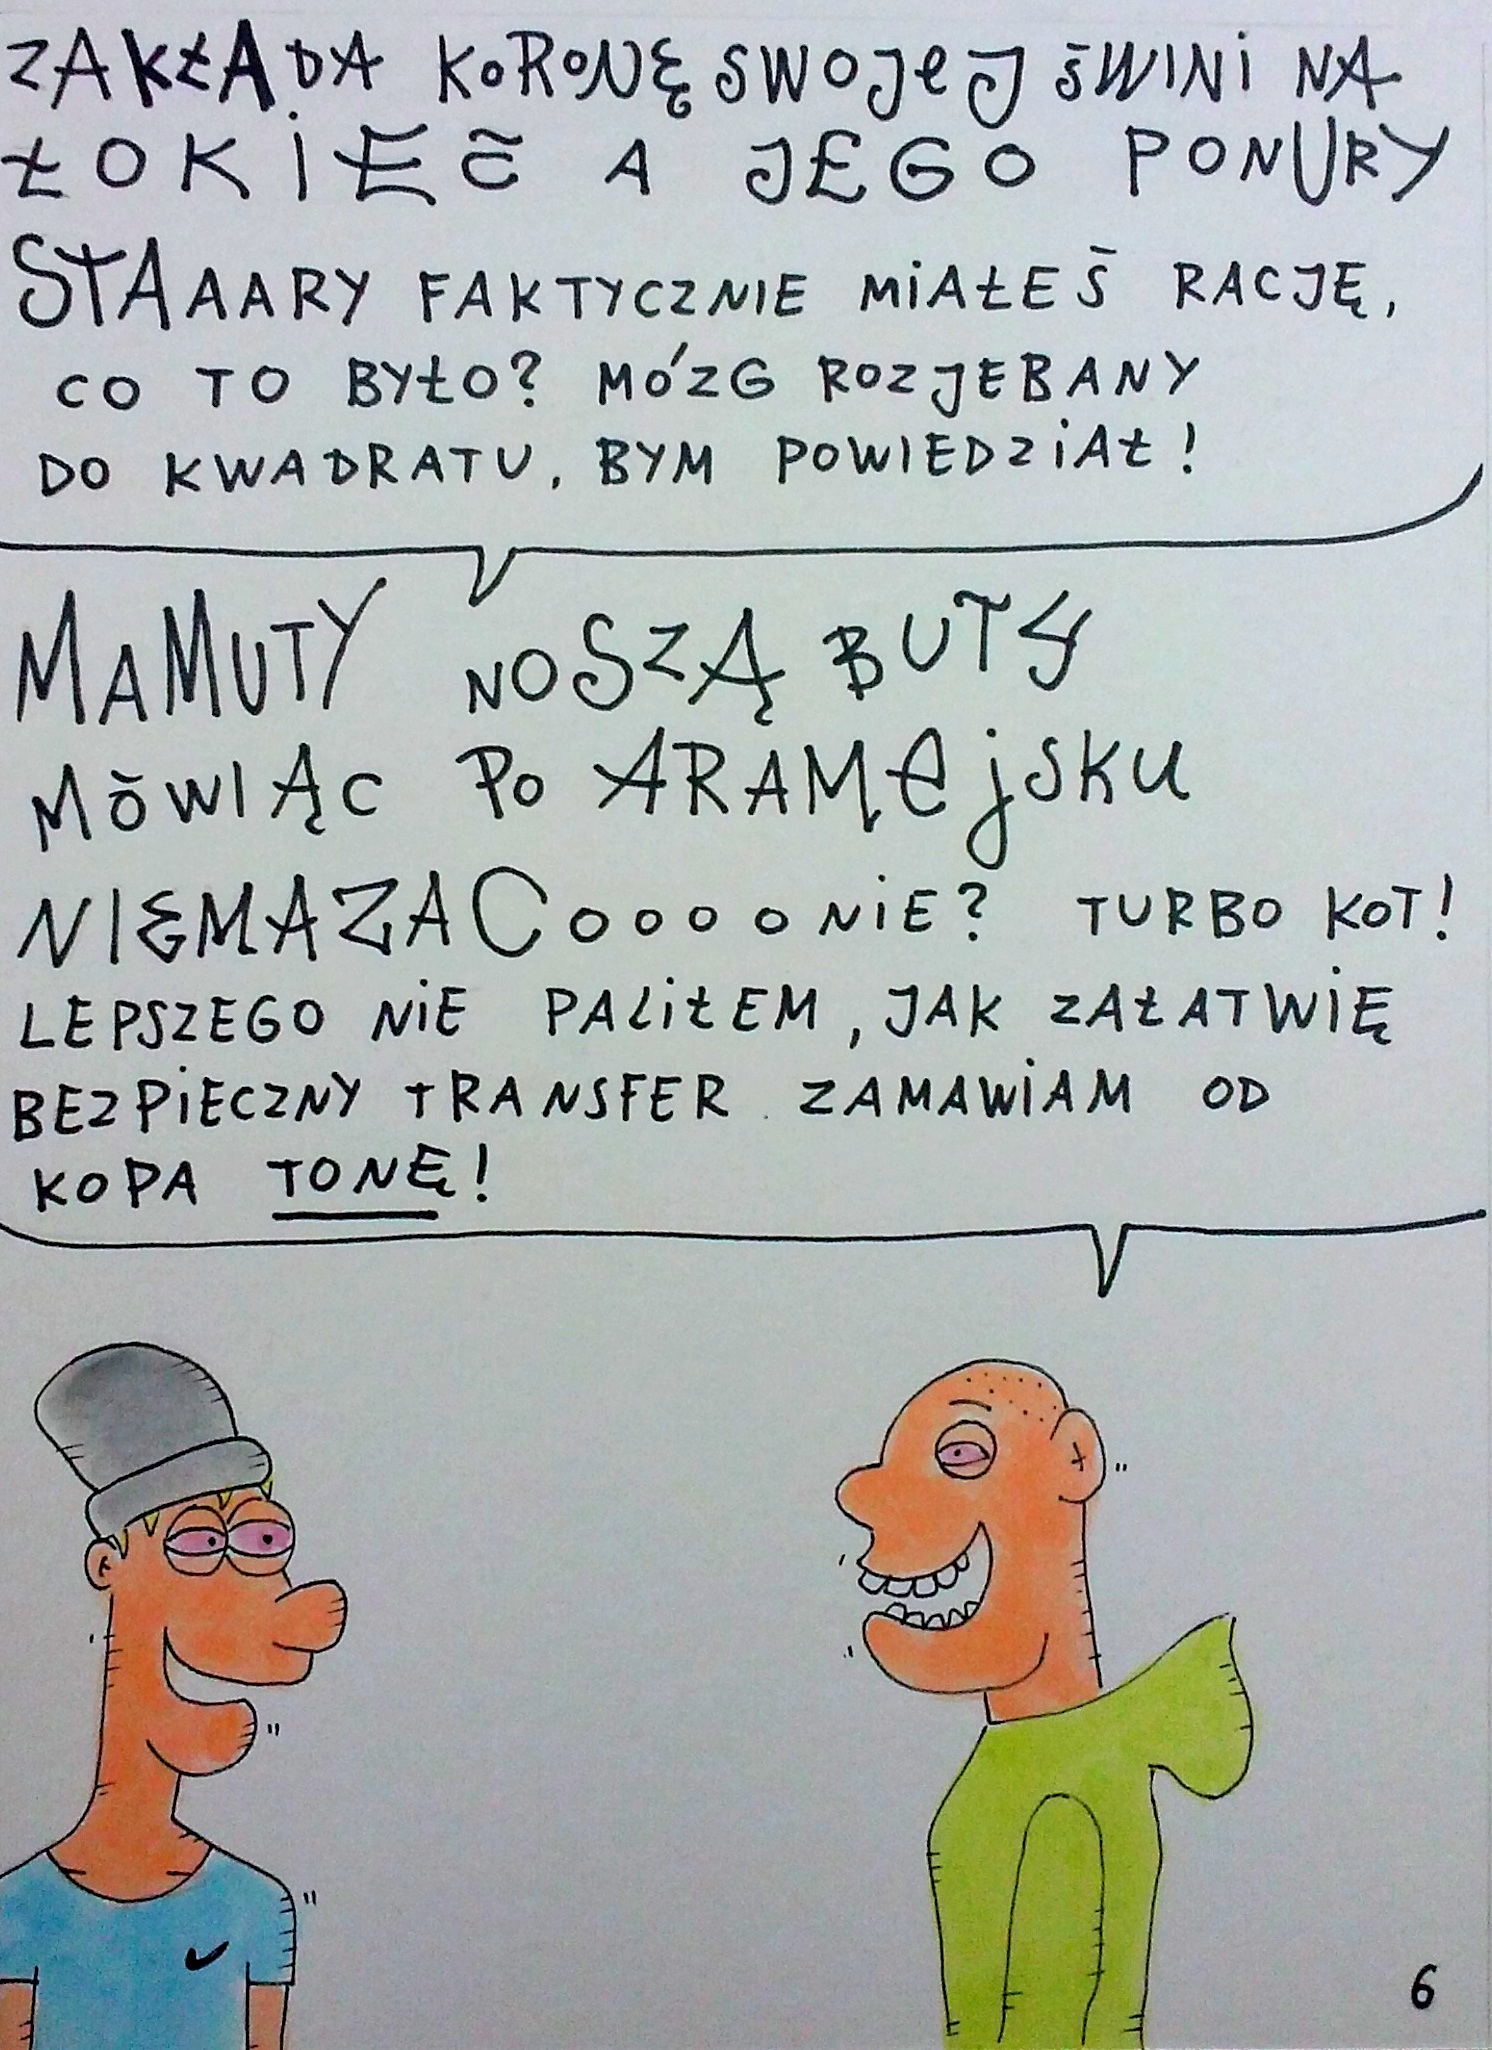 ZAKŁADA KORONĘ SWOJEJ ŚWINI NA
ŁOKIEĆ A JEGO PONURY
STAAAARY FAKTYCZNIE MIAŁEŚ RACJĘ,
CO TO BYŁO? MÓZG ROZJEBANY
DO KWADRATU, BYM POWIEDZIAŁ!
MAMUTY NOSZĄ BUTY
MÓWIĄC PO ARAMEJSKU
NIEMAZACOOOONIE? TURBO KOT!
LEPSZEGO NIE PALIŁEM, JAK ZAŁATWIĘ
BEZPIECZNY TRANSFER ZAMAWIAM OD
KOPA TONĘ!
6